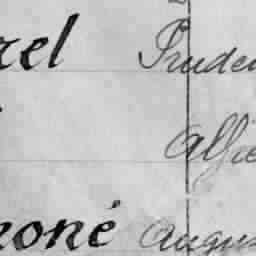 rel Pruden
Alfre
noré Augus